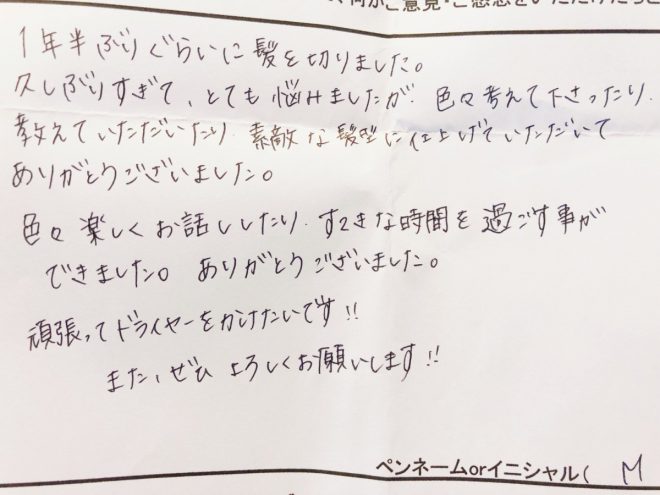 何かご意見・ご感想をいただけたらと
1年半ぶりぐらいに髪を切りました。
久しぶりすぎて、とても悩みましたが 色々考えて下さったり
教えていただいたり 素敵な髪型に仕上げていただいて
ありがとうございました。
色々楽しくお話ししたり すてきな時間を過ごす事が
できました。ありがとうございました。
頑張ってドライヤーをかけたいです!!
また、ぜひ よろしくお願いします!!
ペンネームorイニシャル( M